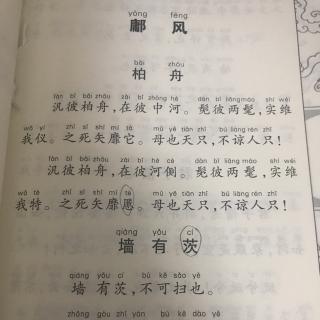 yōng fēng
鄘风
bǎi zhōu
柏舟
fàn bǐ bǎi zhōu zài bǐ zhōng hé dàn bǐ liǎng máo shí wéi
汎彼柏舟，在彼中河。髧彼两髦，实维
wǒ yí zhī sǐ shǐ mí tā mǔ yě tiān zhǐ bú liàng rén zhǐ
我仪。之死矢靡它。母也天只，不谅人只！
fàn bǐ bǎi zhōu zài bǐ hé cè dàn bǐ liǎng máo shí wéi
汎彼柏舟，在彼河侧。髧彼两髦，实维
wǒ tè zhī sǐ shǐ mí tè mǔ yě tiān zhǐ bú liàng rén zhǐ
我特。之死矢靡慝。母也天只，不谅人只！
qiáng yǒu cí
墙有茨
qiáng yǒu cí bù kě sǎo yě
墙有茨，不可扫也。